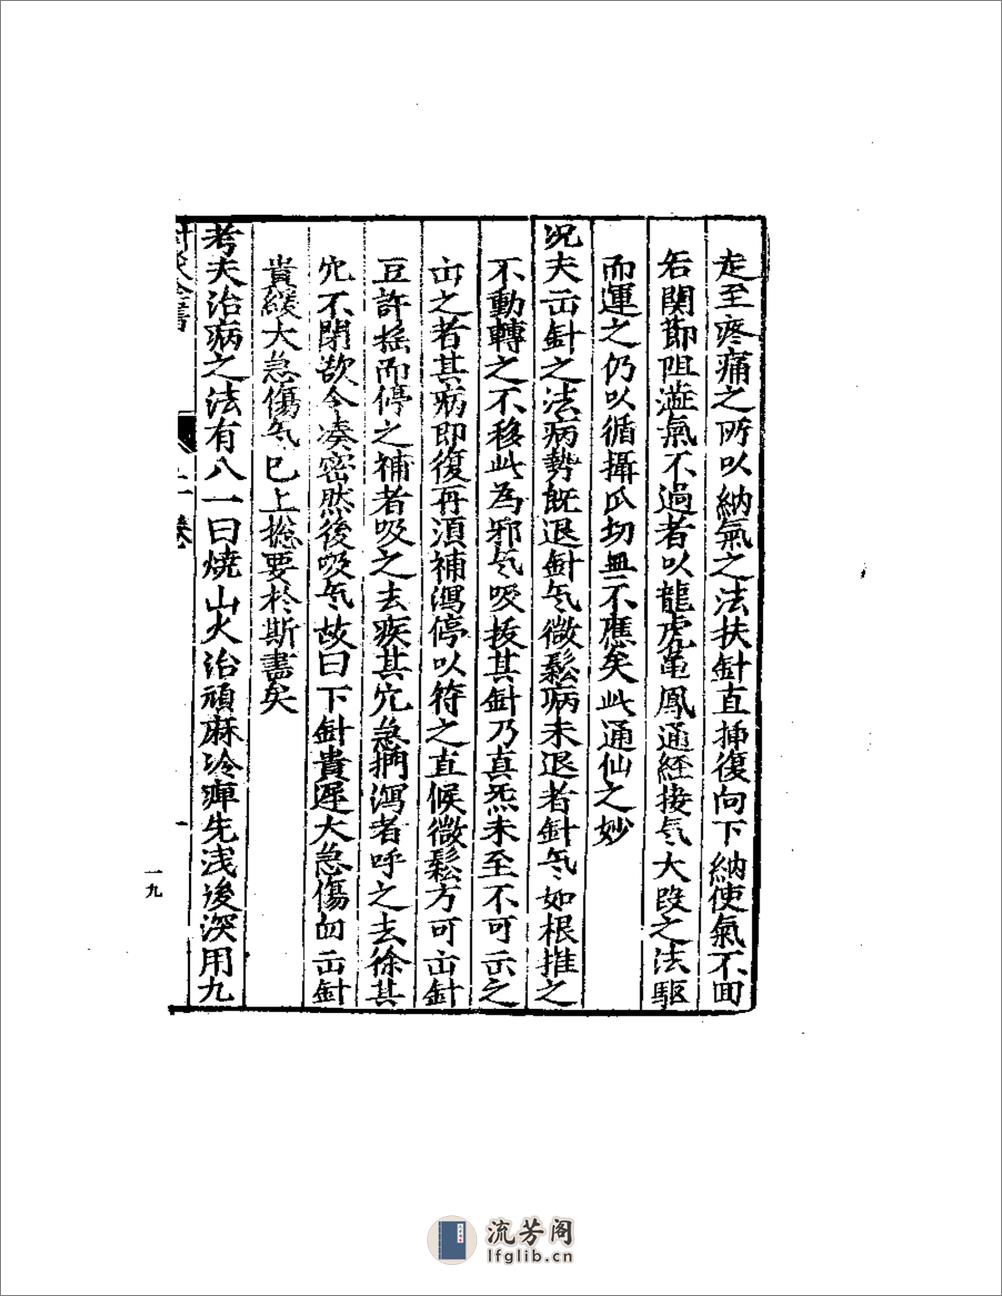 走至疼痛之所以納氣之法扶針直插復向下納使氣不回
若関節阻澁氣不過者以龍虎龜鳳通經接气大叚之法驅
而運之仍以循攝爪切無不應矣此通仙之妙
况夫出針之法病勢既退針气微鬆病未退者針气如根推之
不動轉之不移此為邪气吸拔其針乃真炁未至不可出之
出之者其病即復再湏補瀉停以符之直候微鬆方可出針
豆許摇而停之補者吸之去疾其穴急捫瀉者呼之去徐其
穴不閉欲令凑密然後吸气故曰下針貴遲太急傷血出針
貴緩大急傷气已上捴要於斯盡矣
考夫治病之法有八一曰燒山火治頑麻冷痺先浅後深用九
針灸全書
二卷
一九
流芳阁
lfglib.cn